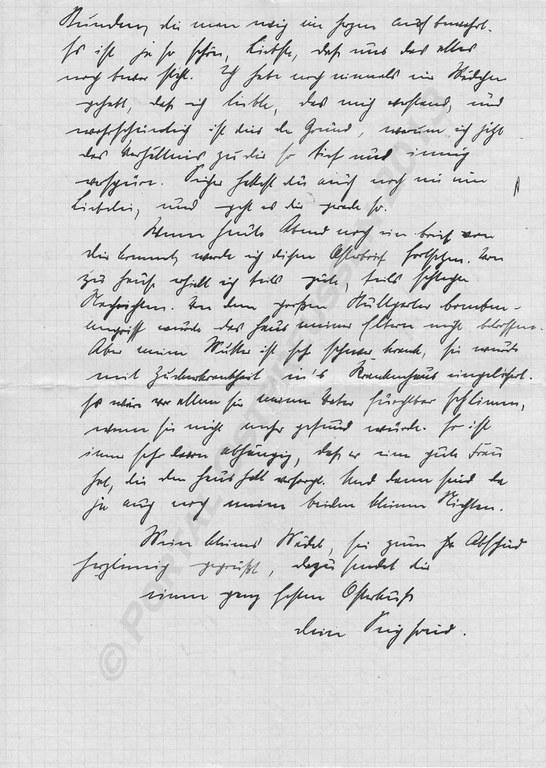 Stunden, die man ewig im Herzen aufbewahrt.
Es ist ja so schön, Liebste, daß uns das alles
noch bevor steht. Ich habe noch niemals ein Mädchen
gehabt, daß ich liebte, das mich verstand, und
wahrscheinlich ist dies der Grund, warum ich jetzt
das Verhältnis zu dir so tief und innig
verspüre. Sicher hattest du auch noch nie eine
Liebelei, und geht es dir gerade so.
Wenn heute Abend noch ein Brief von
dir kommt, werde ich diesen Osterbrief fortsetzen. Von
zu Hause erhielt ich teils gute, teils schlechte
Nachrichten. Von dem großen Stuttgarter Bomben-
angriff wurde das Haus meiner Eltern nicht betroffen.
Aber meine Mutter ist sehr schwer krank, sie wurde
mit Zuckerkrankheit in's Krankenhaus eingeliefert.
Es wäre vor allem für meinen Vater furchtbar schlimm,
wenn sie nicht mehr gesund würde. Er ist
immer sehr davon abhängig, daß er eine gute Frau
hat, die den Haushalt versorgt. Und dann sind da
ja auch noch meine beiden kleinen Nichten.
Mein kleines Mädel, sei zum Abschied
herzinnig gegrüßt, dazu sendet dir
einen ganz festen Osterkuß
dein Siegfried.